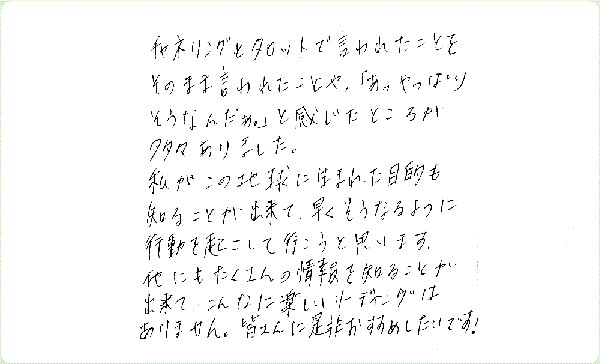 チャネリングとタロットで言われたことを
そのまま言われたことや、「あっやっぱり
そうなんだぁ。」と感じたところが
多々ありました。
私がこの地球に生まれた目的も
知ることが出来て、早くそうなるように
行動を起こして行こうと思います。
他にもたくさんの情報を知ることが
出来て、こんなに楽しいリーディングは
ありません。皆さんに是非おすすめしたいです!